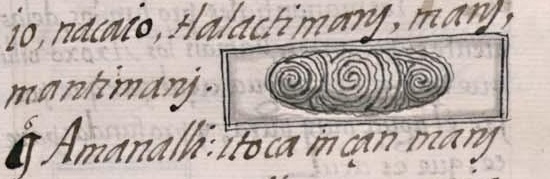 io, nacaio, tlalactimanj, manj,
mantimanj.
¶ Amanalli: itoca in çan manj